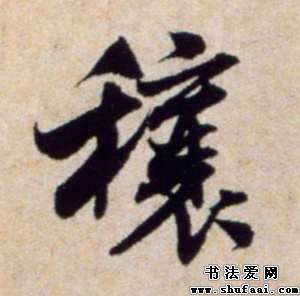 穰
书法爱网
www.shufaai.com